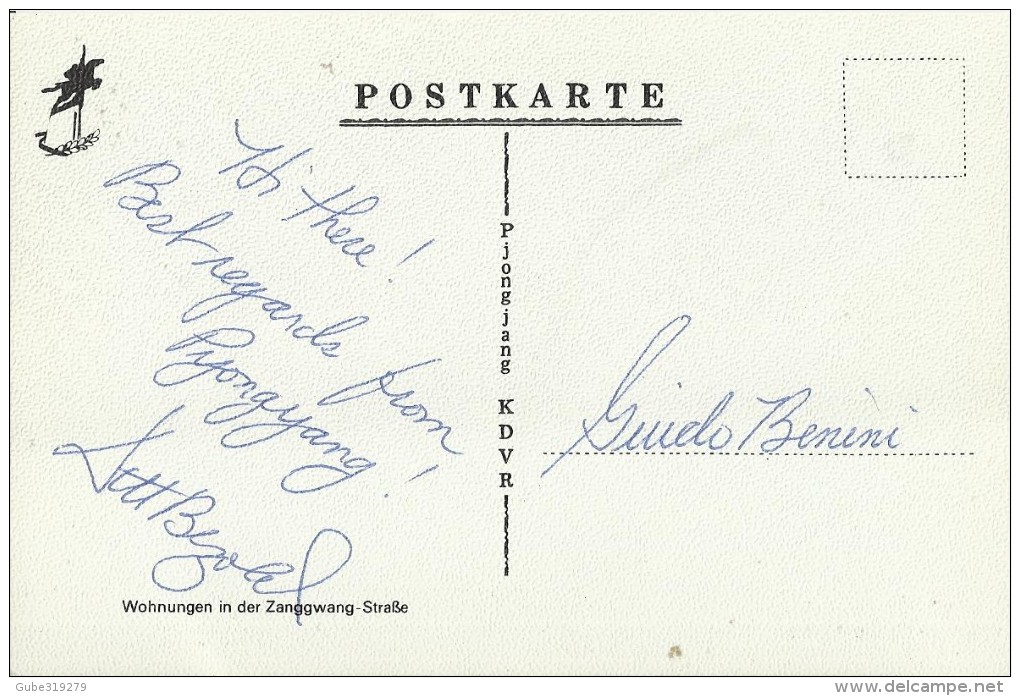 POSTKARTE
Hi there!
Best regards from
Pyongyang!
Pjongjang KDVR
Guido Benini
Wohnungen in der Zanggwang-Straße
Gube319279
delcampe.net